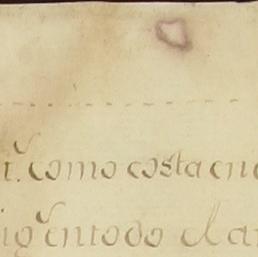 como costa en
en todo el a